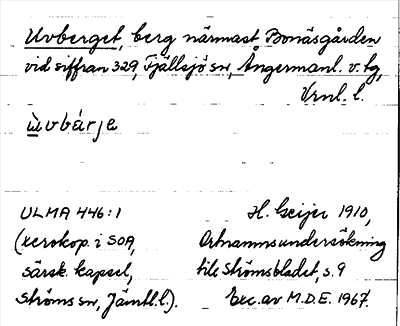 Uvberget, berg närmast Bonäsgården
vid siffran 329, Fjällsjö sn, Ångermanl. v. tg,
Vrnl. l.
ùvbárje
ULMA 446:1
(xerokop. i SOA,
särsk. kapsel,
Ströms sn, Jämtl.l.).
H. Geijer 1910,
Ortnammsundersökning
till Strömsbladet, s. 9
Exc. av M.D.E. 1967.